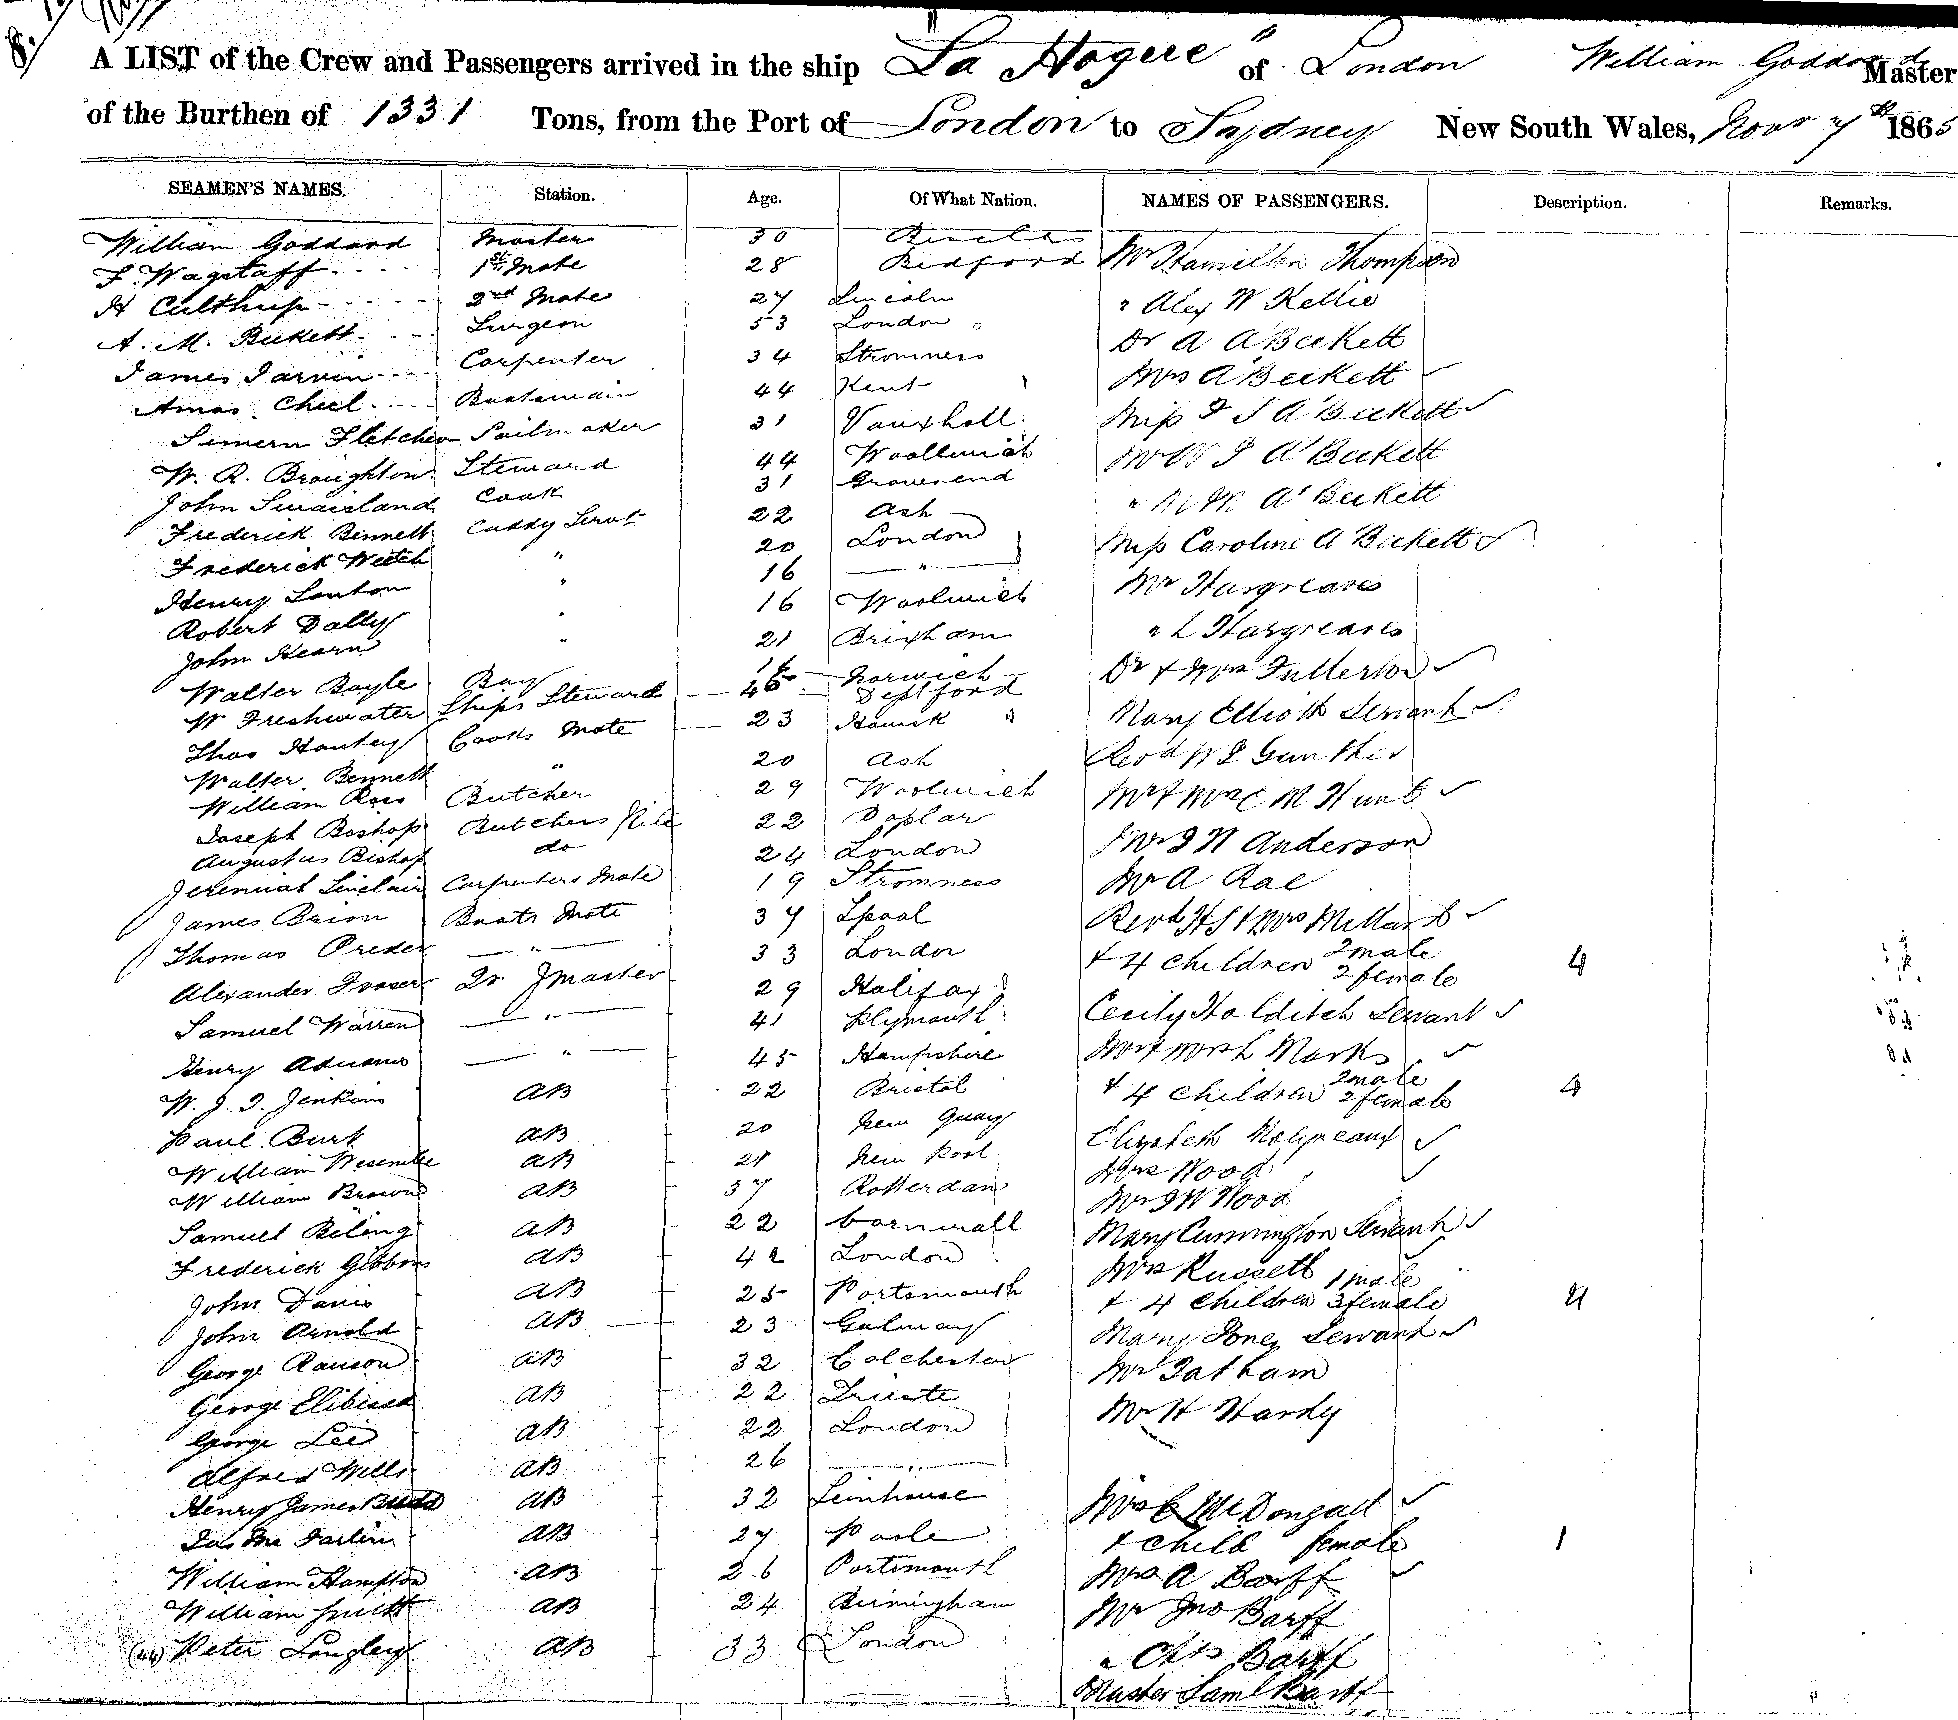 8.
A LIST of the Crew and Passengers arrived in the ship "La Hogue" of London William Goddard Master
of the Burthen of 1331 Tons, from the Port of London to Sydney New South Wales, Novr 7th 1865
SEAMEN'S NAMES. Station. Age. Of What Nation. NAMES OF PASSENGERS. Description. Remarks.
William Goddard Master 30
F. Wagstaff 1st Mate 28 Bedford Mr Hamilton Thompson
H Culthrup 2nd Mate 27 Lincoln " Alex W Kellie
A. M. Beckett Surgeon 53 London Dr A A'Beckett
James Jarvin Carpenter 34 Stromness Mrs A'Beckett
Amos Cheel Boatswain 44 Kent Miss F S A'Beckett
Fletcher Sailmaker 31 Vauxhall Mr W J A'Beckett
W. R. Broughton Steward 44 Woollwich " M A'Beckett
John Swaisland Cook 31 Gravesend Miss Caroline A Beckett
Frederick Bennett Cuddy Servt 22 Ash Mr Hargreaves
Frederick Welch " 20 London " L Hargreaves
Henry Lenton " 16 " Dr & Mrs Fullerton
Robert Dally " 16 Woolwich Mary Elliott Servant
John Hearn " 21 Brixham Revd W J Gunther
Walter Bayle Boy 16 Norwich Mr & Mrs C M Hunt
W Freshwater Ships Steward 45 Deptford Mr J N Anderson
Thos Hantey Cooks Mate 23 Hawick Mr A Rae
Walter Bennett " 20 Ash Revd H S & Mrs Millard
William Ross Butcher 29 Woolwich & 4 children 2 male 2 female 4
Joseph Bishop Butchers Mate 22 Poplar Cecily Holditch Servant
Augustus Bishop do 24 London Mr & Mrs Marks
Jeremiah Sinclair Carpenters Mate 19 Stromness & 4 children 2 male 2 female 4
James Brion Boats Mate 37 Lpool Elizabeth Molineaux
Thomas " 33 London Mrs Wood
Alexander Fraser Qr Master 29 Halifax Mr J W Wood
Samuel Warren " 41 Plymouth Mary Cunnington Servant
Henry Adnams " 45 Hampshire Mrs Russell
W. J. J. Jenkins AB 22 Bristol & 4 children 1 male 3 female 4
Paul Burk AB 20 New Quay Mary Jones Servant
William AB 21 New Port Mr Tatham
William Brown AB 37 Rotterdam Mr H Hardy
Samuel Beling AB 22 Cornwall Mrs C McDougall
Frederick Gibbons AB 42 London & child female 1
John Davis AB 25 Portsmouth Mrs A Barff
John Arnold AB 23 Galway Mr Jno Barff
George Ranson AB 32 Colchester " Chs Barff
George AB 22 Trieste Master Saml Barff
George Lee AB 22 London
Alfred Wills AB 26 "
Henry James Budd AB 32 Limhouse
Jas Mc Farlin AB 27 Poole
William Hampton AB 26 Portsmouth
William Smith AB 24 Birmingham
Peter Longley AB 33 London